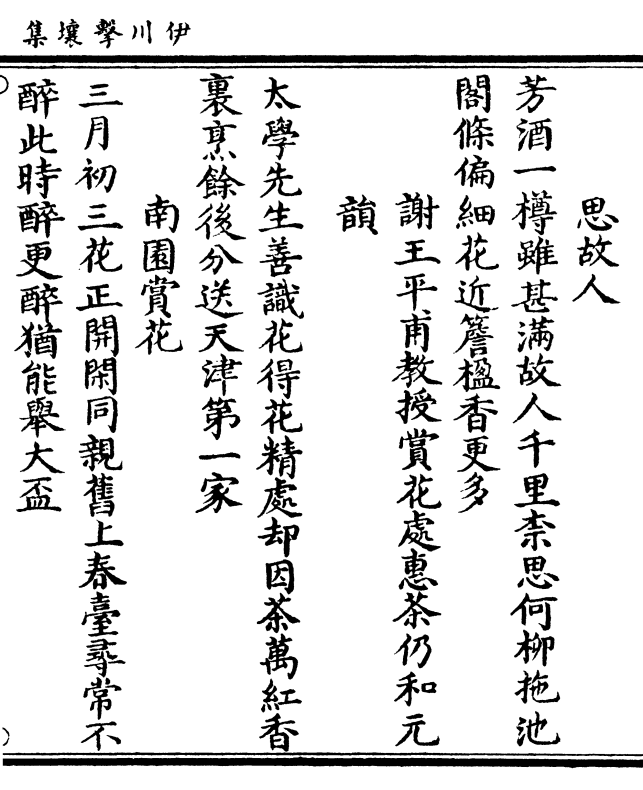 伊川擊壤集
思故人
芳酒一樽雖甚滿故人千里柰思何柳拖池
閣條偏細花近簷楹香更多
謝王平甫教授賞花處惠茶仍和元
韻
太學先生善識花得花精處却因茶萬紅香
裏烹餘後分送天津第一家
南園賞花
三月初三花正開閑同親舊上春臺尋常不
醉此時醉更醉猶能舉大盃